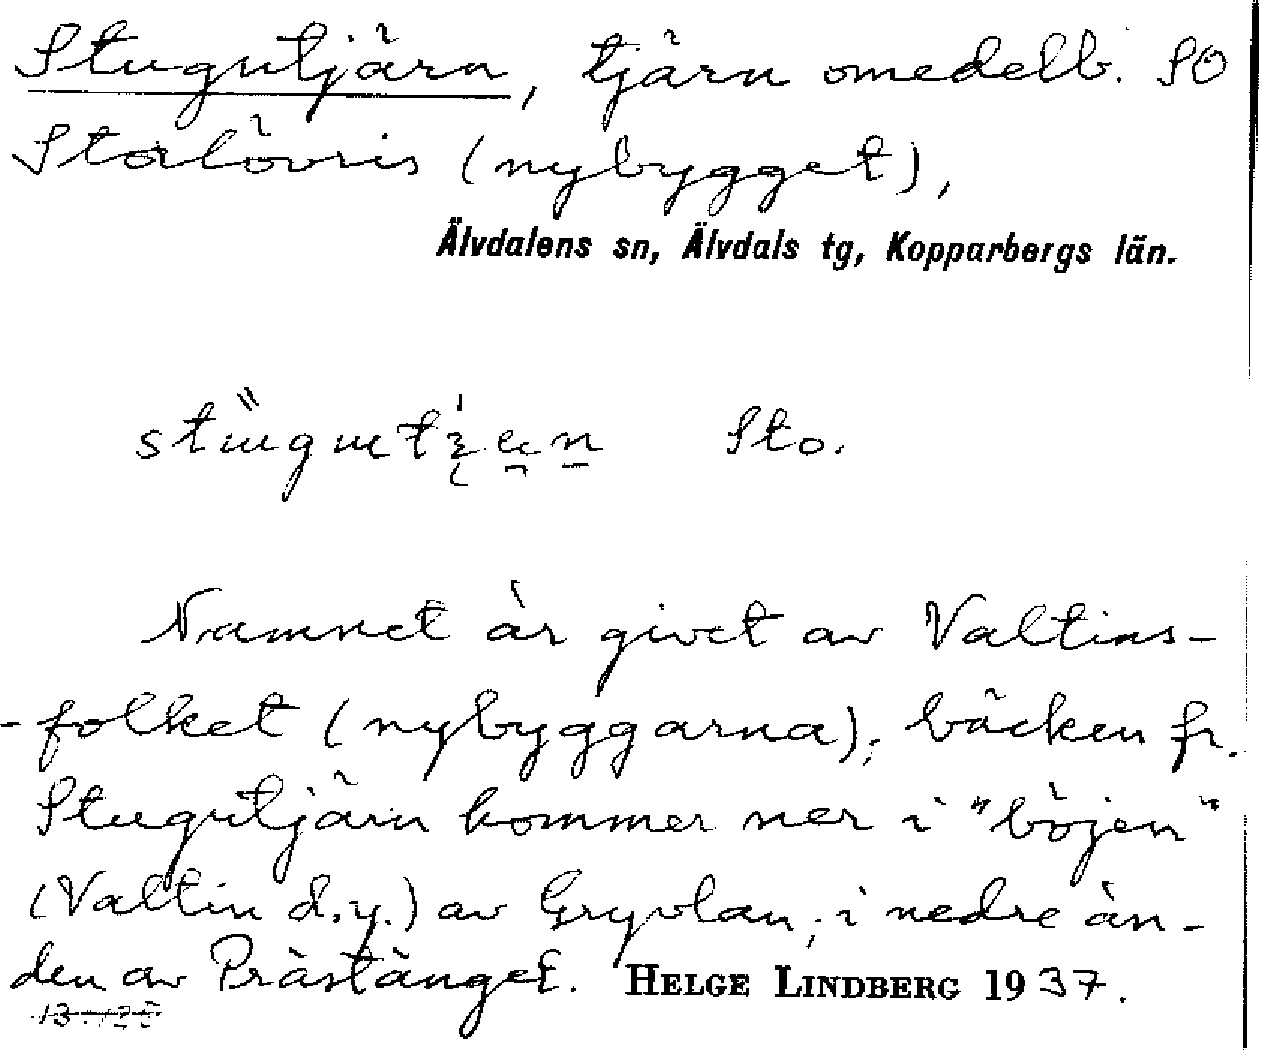 Stugutjärn, tjärn omedelb. SO
Stalövris (nybygget),
Älvdalens sn, Älvdals tg, Kopparbergs län.
Sto.
Namnet är givet av Valtins-
-folket (nybyggarna); bäcken fr.
Stugutjärn kommer ner i "böjen"
(Valtin d.y.) av Gryvlan; i nedre än-
den av Prästänget. HELGE LINDBERG 1937.